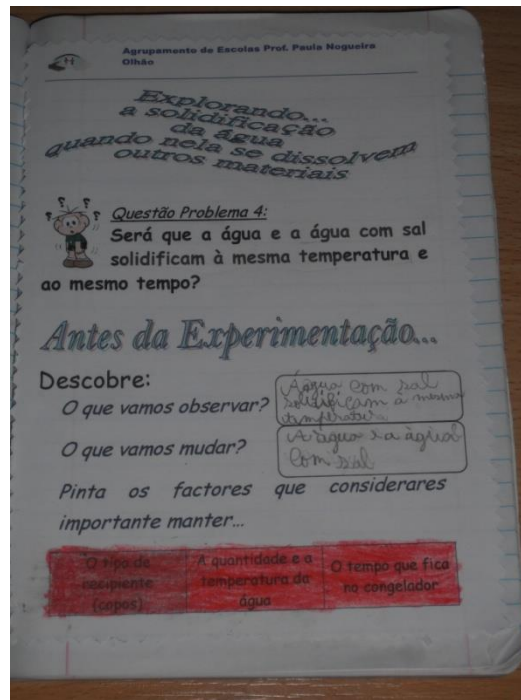 Agrupamento de Escolas Prof. Paula Nogueira
Olhão
Explorando...
a solidificação
da água
quando nela se dissolvem
outros materiais
Questão Problema 4:
Será que a água e a água com sal
solidificam à mesma temperatura e
ao mesmo tempo?
Antes da Experimentação...
Descobre:
O que vamos observar?
Á água com sal
solidificam á mesma
temperatura
O que vamos mudar?
A água e a água
com sal
Pinta os factores que considerares
importante manter...
O tipo de
recipiente
(copos)
A quantidade e a
temperatura da
água
O tempo que fica
no congelador